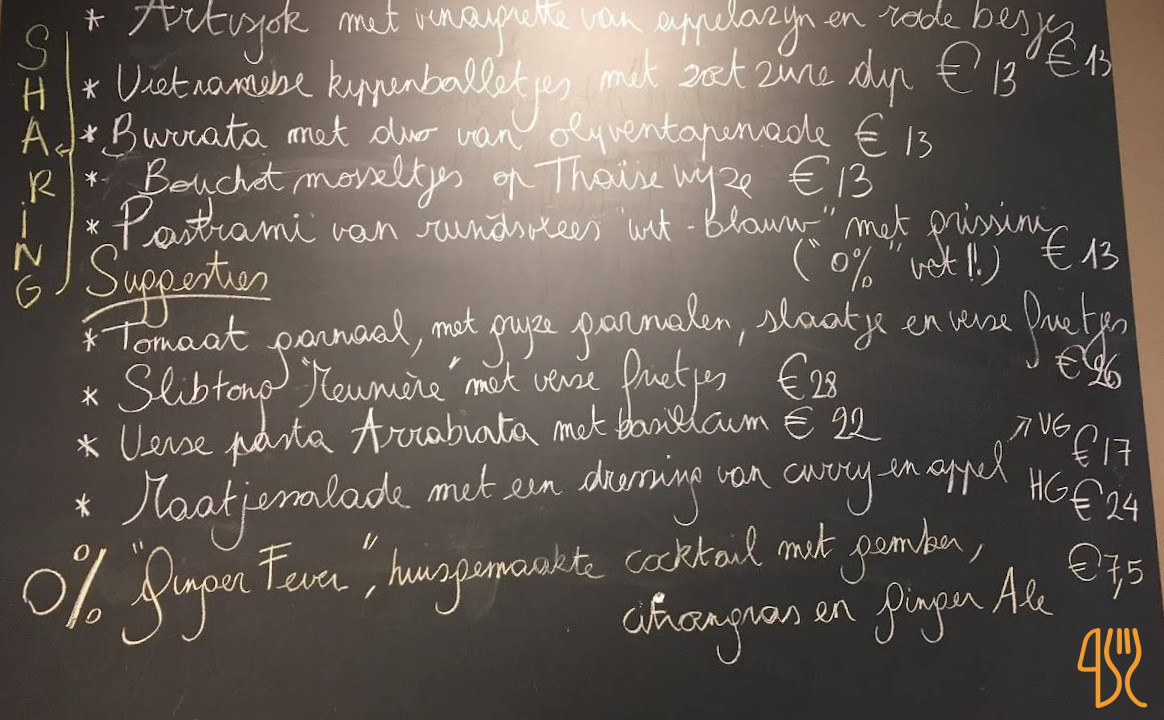 SHARING
* Artisjok met vinaigrette van appelazijn en rode besjes € 13
* Vietnamese kippenballetjes met zoet zure dip € 13
* Burrata met duo van olijventapenade € 13
* Bouchot mosseltjes op Thaïse wijze € 13
* Pastrami van rundsvlees "wit-blauw" met grissini
("0%" vet!!) € 13
Suggesties
* Tomaat garnaal, met grijze garnalen, slaatje en verse frietjes
€ 26
* Slibtong "Meunière" met verse frietjes € 28
* Verse pasta Arrabiata met basilicum € 22
* Maatjessalade met een dressing van curry en appel VG € 17
HG € 24
0% "Ginger Fever", huisgemaakte cocktail met gember,
citroengras en Ginger Ale € 7,5